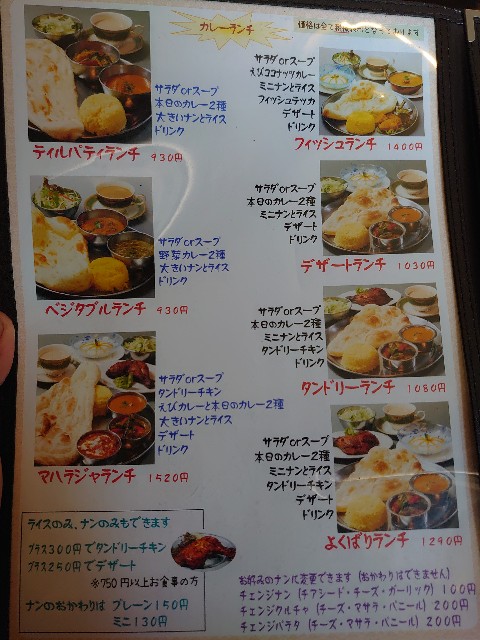 カレーランチ
価格は全て税抜表示となっております
サラダorスープ
本日のカレー2種
大きいナンとライス
ドリンク
ティルパティランチ 930円
サラダorスープ
野菜カレー2種
大きいナンとライス
ドリンク
ベジタブルランチ 930円
サラダorスープ
タンドリーチキン
えびカレーと本日のカレー2種
大きいナンとライス
デザート
ドリンク
マハラジャランチ 1520円
サラダorスープ
えびココナッツカレー
ミニナンとライス
フィッシュテッカ
デザート
ドリンク
フィッシュランチ 1400円
サラダorスープ
本日のカレー2種
ミニナンとライス
デザート
ドリンク
デザートランチ 1030円
サラダorスープ
本日のカレー2種
ミニナンとライス
タンドリーチキン
ドリンク
タンドリーランチ 1080円
サラダorスープ
本日のカレー2種
ミニナンとライス
タンドリーチキン
デザート
ドリンク
よくばりランチ 1290円
ライスのみ、ナンのみもできます
プラス300円でタンドリーチキン
プラス250円でデザート
※750円以上お食事の方
ナンのおかわりは プレーン150円
ミニ130円
お好みのナンに変更できます (おかわりはできません)
チェンジナン (チアシード・チーズ・ガーリック) 100円
チェンジクルチャ (チーズ・マサラ・パニール) 200円
チェンジパラタ (チーズ・マサラ・パニール) 200円